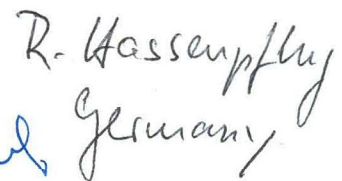 R. Hassenpflug
Germany